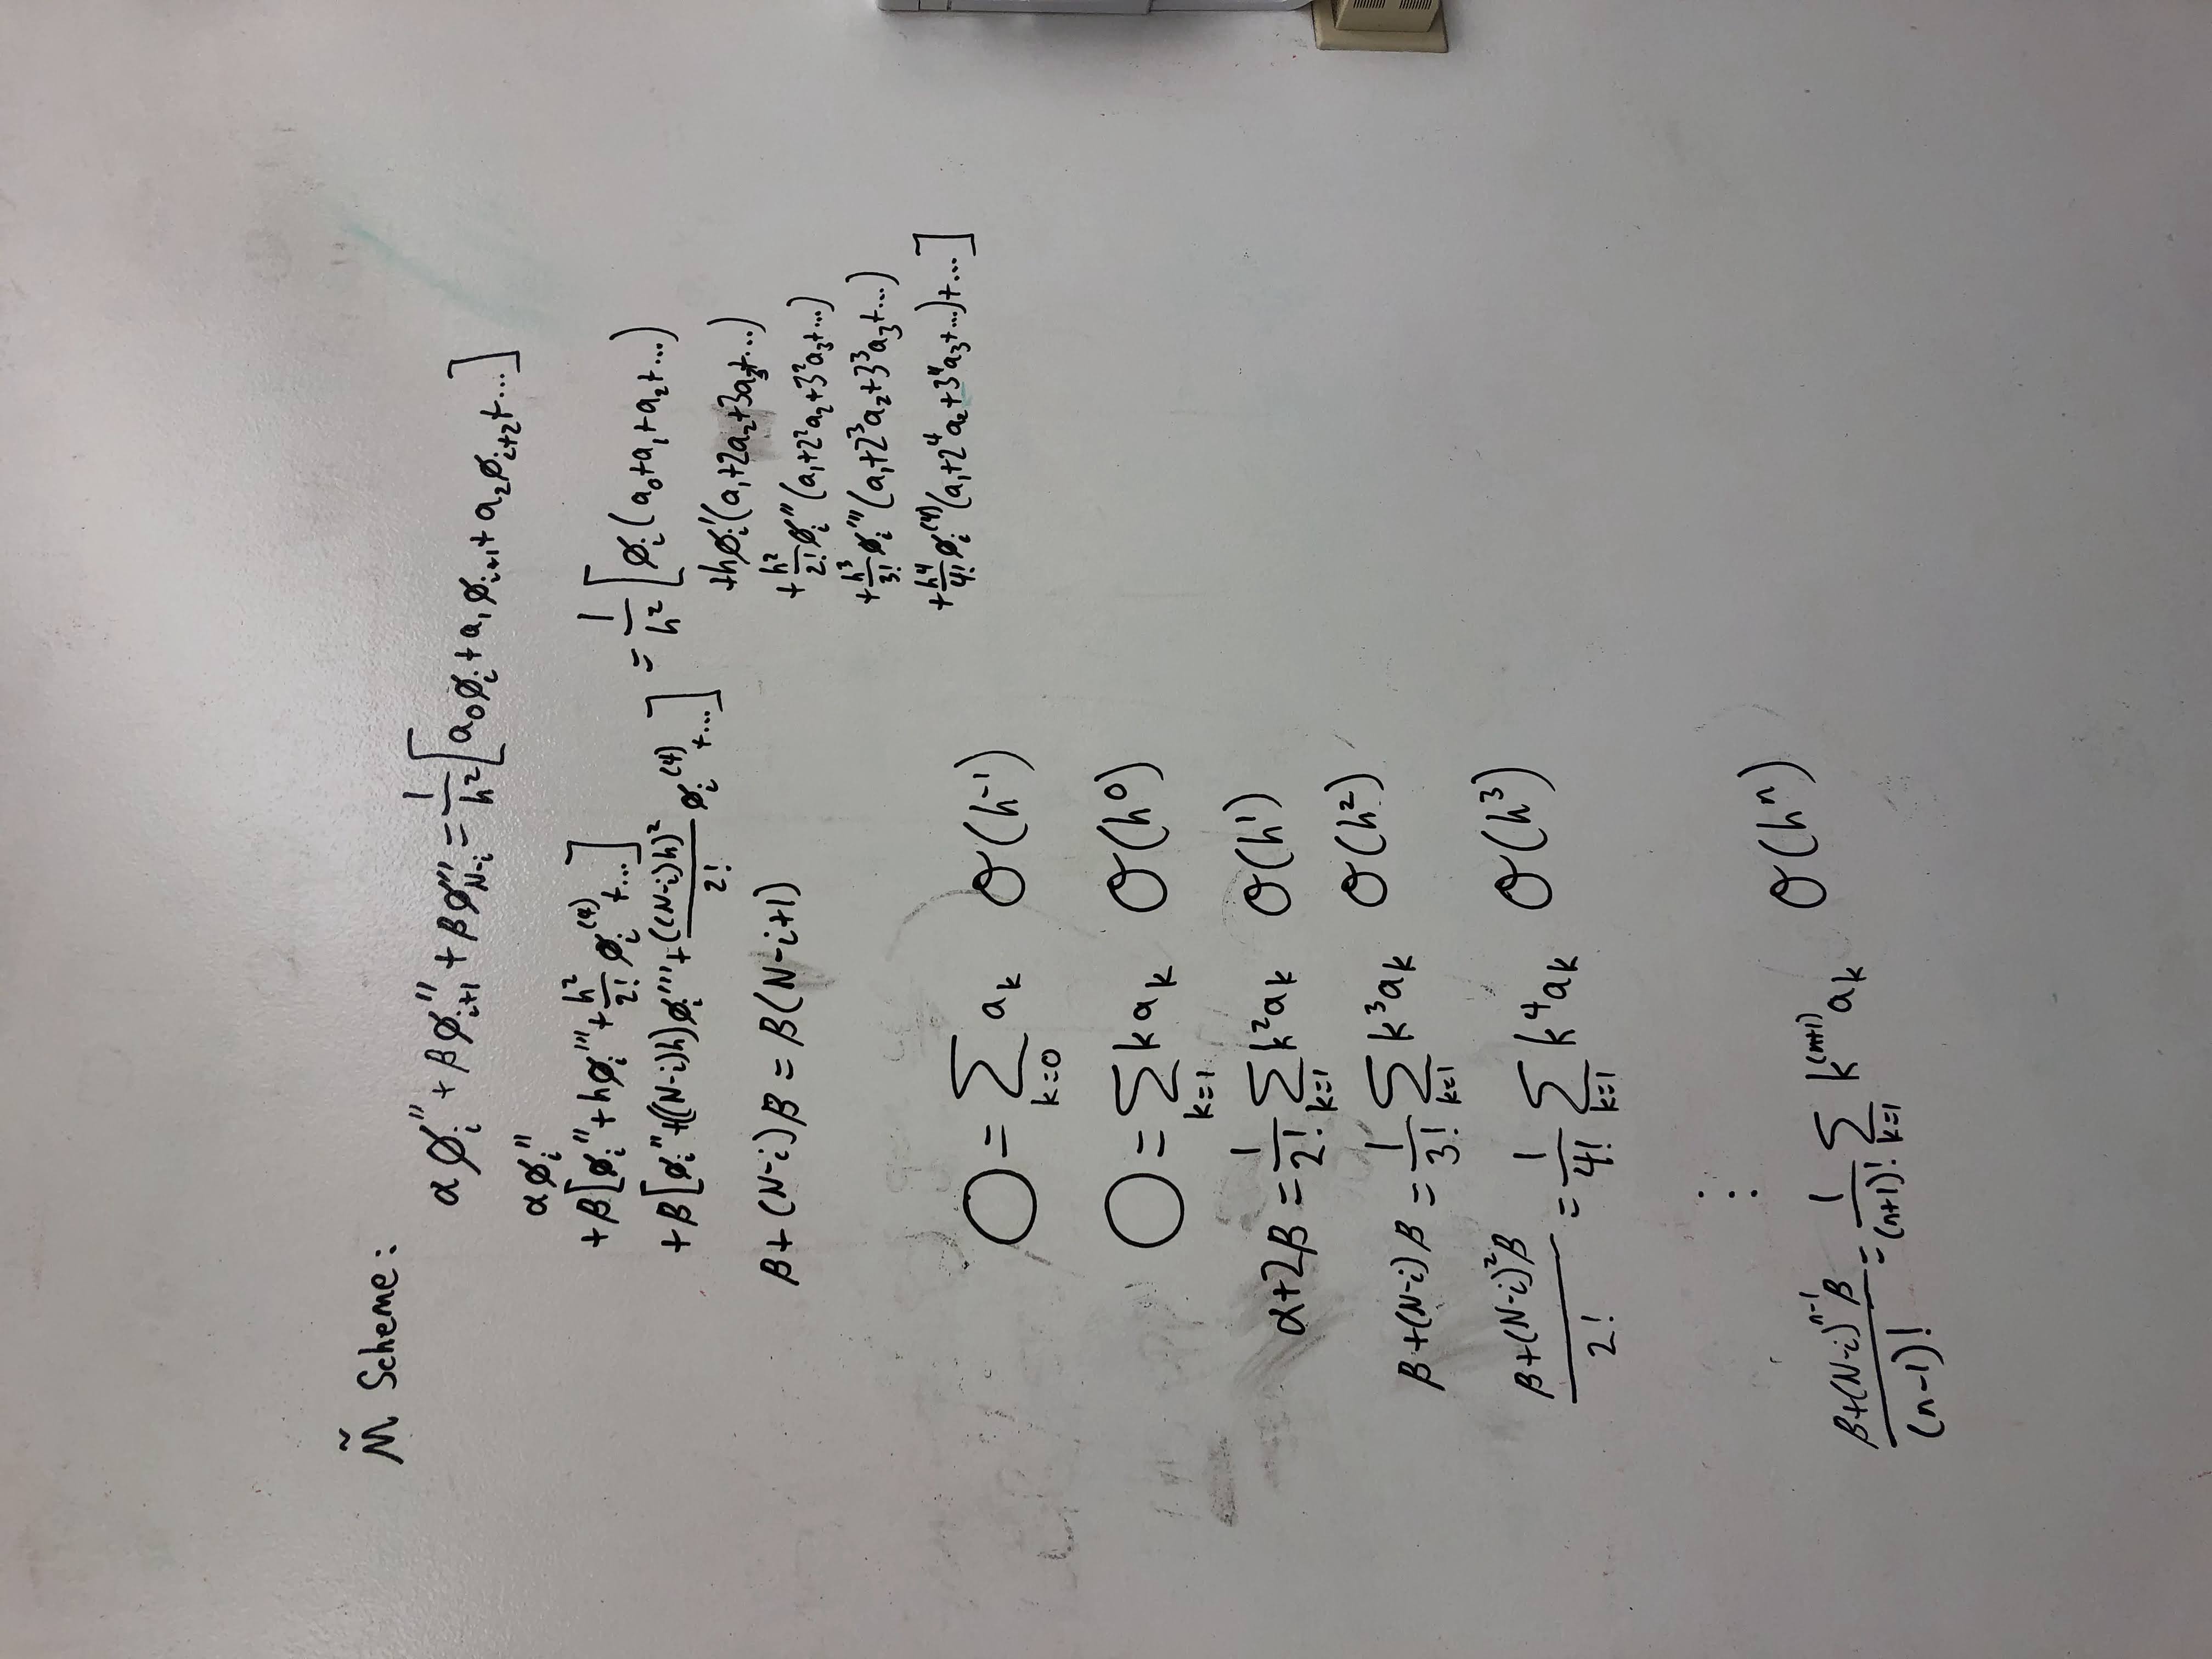 M̃ Scheme:
αφᵢ'' + βφᵢ₊₁'' + βφ'''_{N-i} = 1/h² [a₀φᵢ + a₁φᵢ₊₁ + a₂φᵢ₊₂ + ...]
αφᵢ''
+ β[φᵢ'' + hφᵢ''' + h²/2! φᵢ⁽⁴⁾ + ...]
+ β[φᵢ'' + ((N-i)h)φᵢ''' + ((N-i)h)²/2! φᵢ⁽⁴⁾ + ...] = 1/h² [φᵢ(a₀+a₁+a₂+...)
+hφᵢ'(a₁+2a₂+3a₃+...)
+h²/2! φᵢ''(a₁+2²a₂+3²a₃+...)
+h³/3! φᵢ'''(a₁+2³a₂+3³a₃+...)
+h⁴/4! φᵢ⁽⁴⁾(a₁+2⁴a₂+3⁴a₃+...)+...]
β+(N-i)β = β(N-i+1)
0 = Σ_{k=0} a_k O(h⁻¹)
0 = Σ_{k=1} k a_k O(h⁰)
α+2β = 1/2! Σ_{k=1} k² a_k O(h¹)
β+(N-i)β = 1/3! Σ_{k=1} k³ a_k O(h²)
(β+(N-i)²β)/2! = 1/4! Σ_{k=1} k⁴ a_k O(h³)
⋮
(β+(N-i)ⁿ⁻¹β)/(n-1)! = 1/(n+1)! Σ_{k=1} k⁽ⁿ⁺¹⁾ a_k O(hⁿ)